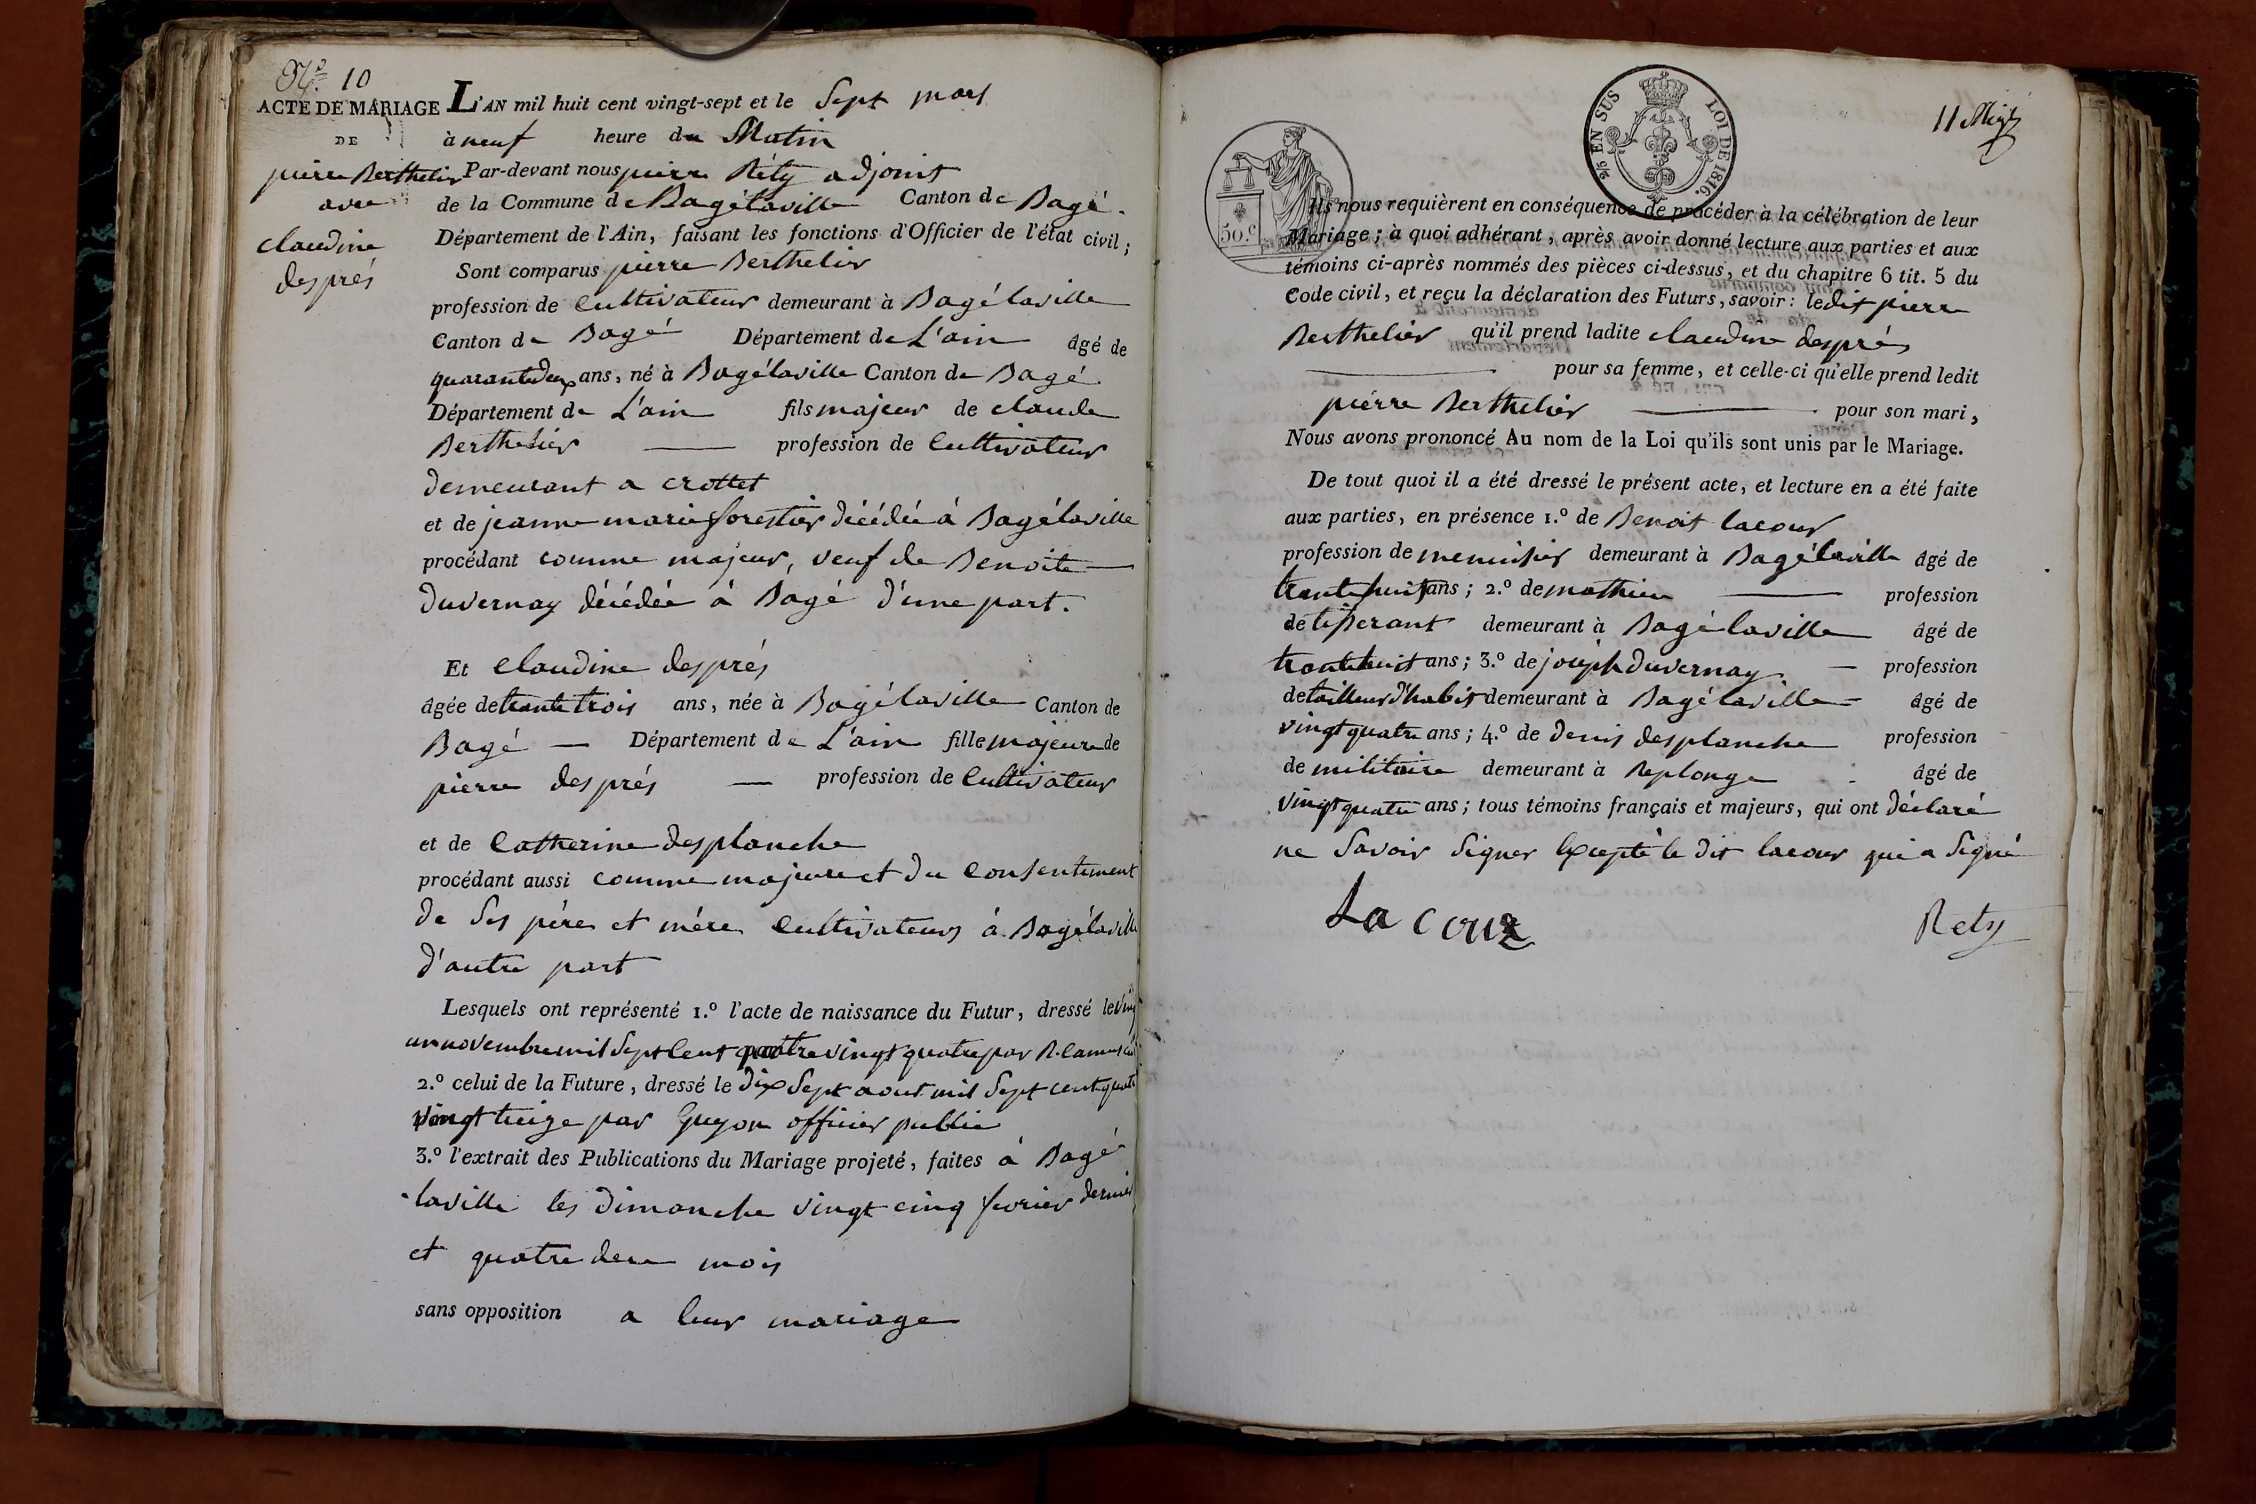 N.º 10
ACTE DE MARIAGE
DE
pierre Berthelier
avec
claudine
després
L'AN mil huit cent vingt-sept et le Sept mars
à neuf heure du Matin
Par-devant nous pierre Réty adjoint
de la Commune de Bagélaville Canton de Bagé.
Département de l'Ain, faisant les fonctions d'Officier de l'état civil;
Sont comparus pierre Berthelier
profession de Cultivateur demeurant à Bagélaville
Canton de Bagé Département de L'ain âgé de
quarantedeux ans, né à Bagélaville Canton de Bagé
Département de L'ain fils majeur de claude
Berthelier profession de Cultivateur
demeurant a crottet
et de jeanne marie forestier décédée à Bagélaville
procédant comme majeur, veuf de Benoite
duvernay décédée à Bagé d'une part.
Et Claudine després
âgée de trente trois ans, née à Bagélaville Canton de
Bagé Département de L'ain fille majeure de
pierre després profession de Cultivateur
et de Catherine desplanche
procédant aussi comme majeure et du Consentement
de Ses pére et mére Cultivateurs à Bagélaville
d'autre part
Lesquels ont représenté 1.º l'acte de naissance du Futur, dressé le Vingt
un novembre mil Sept Cent quatre vingt quatre par R. Camus
2.º celui de la Future, dressé le dix Sept aout mil Sept cent quatre
Vingt treize par Guyon officier public
3.º l'extrait des Publications du Mariage projeté, faites à Bagé
laville les dimanche vingt cinq fevrier dernier
et quatre de ce mois
sans opposition a leur mariage
50.c
25 EN SUS LOI DE 1816.
11
Ils nous requièrent en conséquence de procéder à la célébration de leur
Mariage; à quoi adhérant, après avoir donné lecture aux parties et aux
témoins ci-après nommés des pièces ci-dessus, et du chapitre 6 tit. 5 du
Code civil, et reçu la déclaration des Futurs, savoir: ledit pierre
Berthelier qu'il prend ladite claudine després
pour sa femme, et celle-ci qu'elle prend ledit
pierre Berthelier pour son mari,
Nous avons prononcé Au nom de la Loi qu'ils sont unis par le Mariage.
De tout quoi il a été dressé le présent acte, et lecture en a été faite
aux parties, en présence 1.º de Benoit lacour
profession de menuisier demeurant à Bagélaville âgé de
trente huit ans; 2.º de mathieu profession
de tisserant demeurant à Bagélaville âgé de
trente huit ans; 3.º de joseph duvernay profession
de tailleur d'habit demeurant à Bagélaville âgé de
vingt quatre ans; 4.º de denis desplanche profession
de militaire demeurant à Replonge âgé de
vingt quatre ans; tous témoins français et majeurs, qui ont déclaré
ne Savoir Signer Excepté le dit lacour qui a Signé
La cour Rety